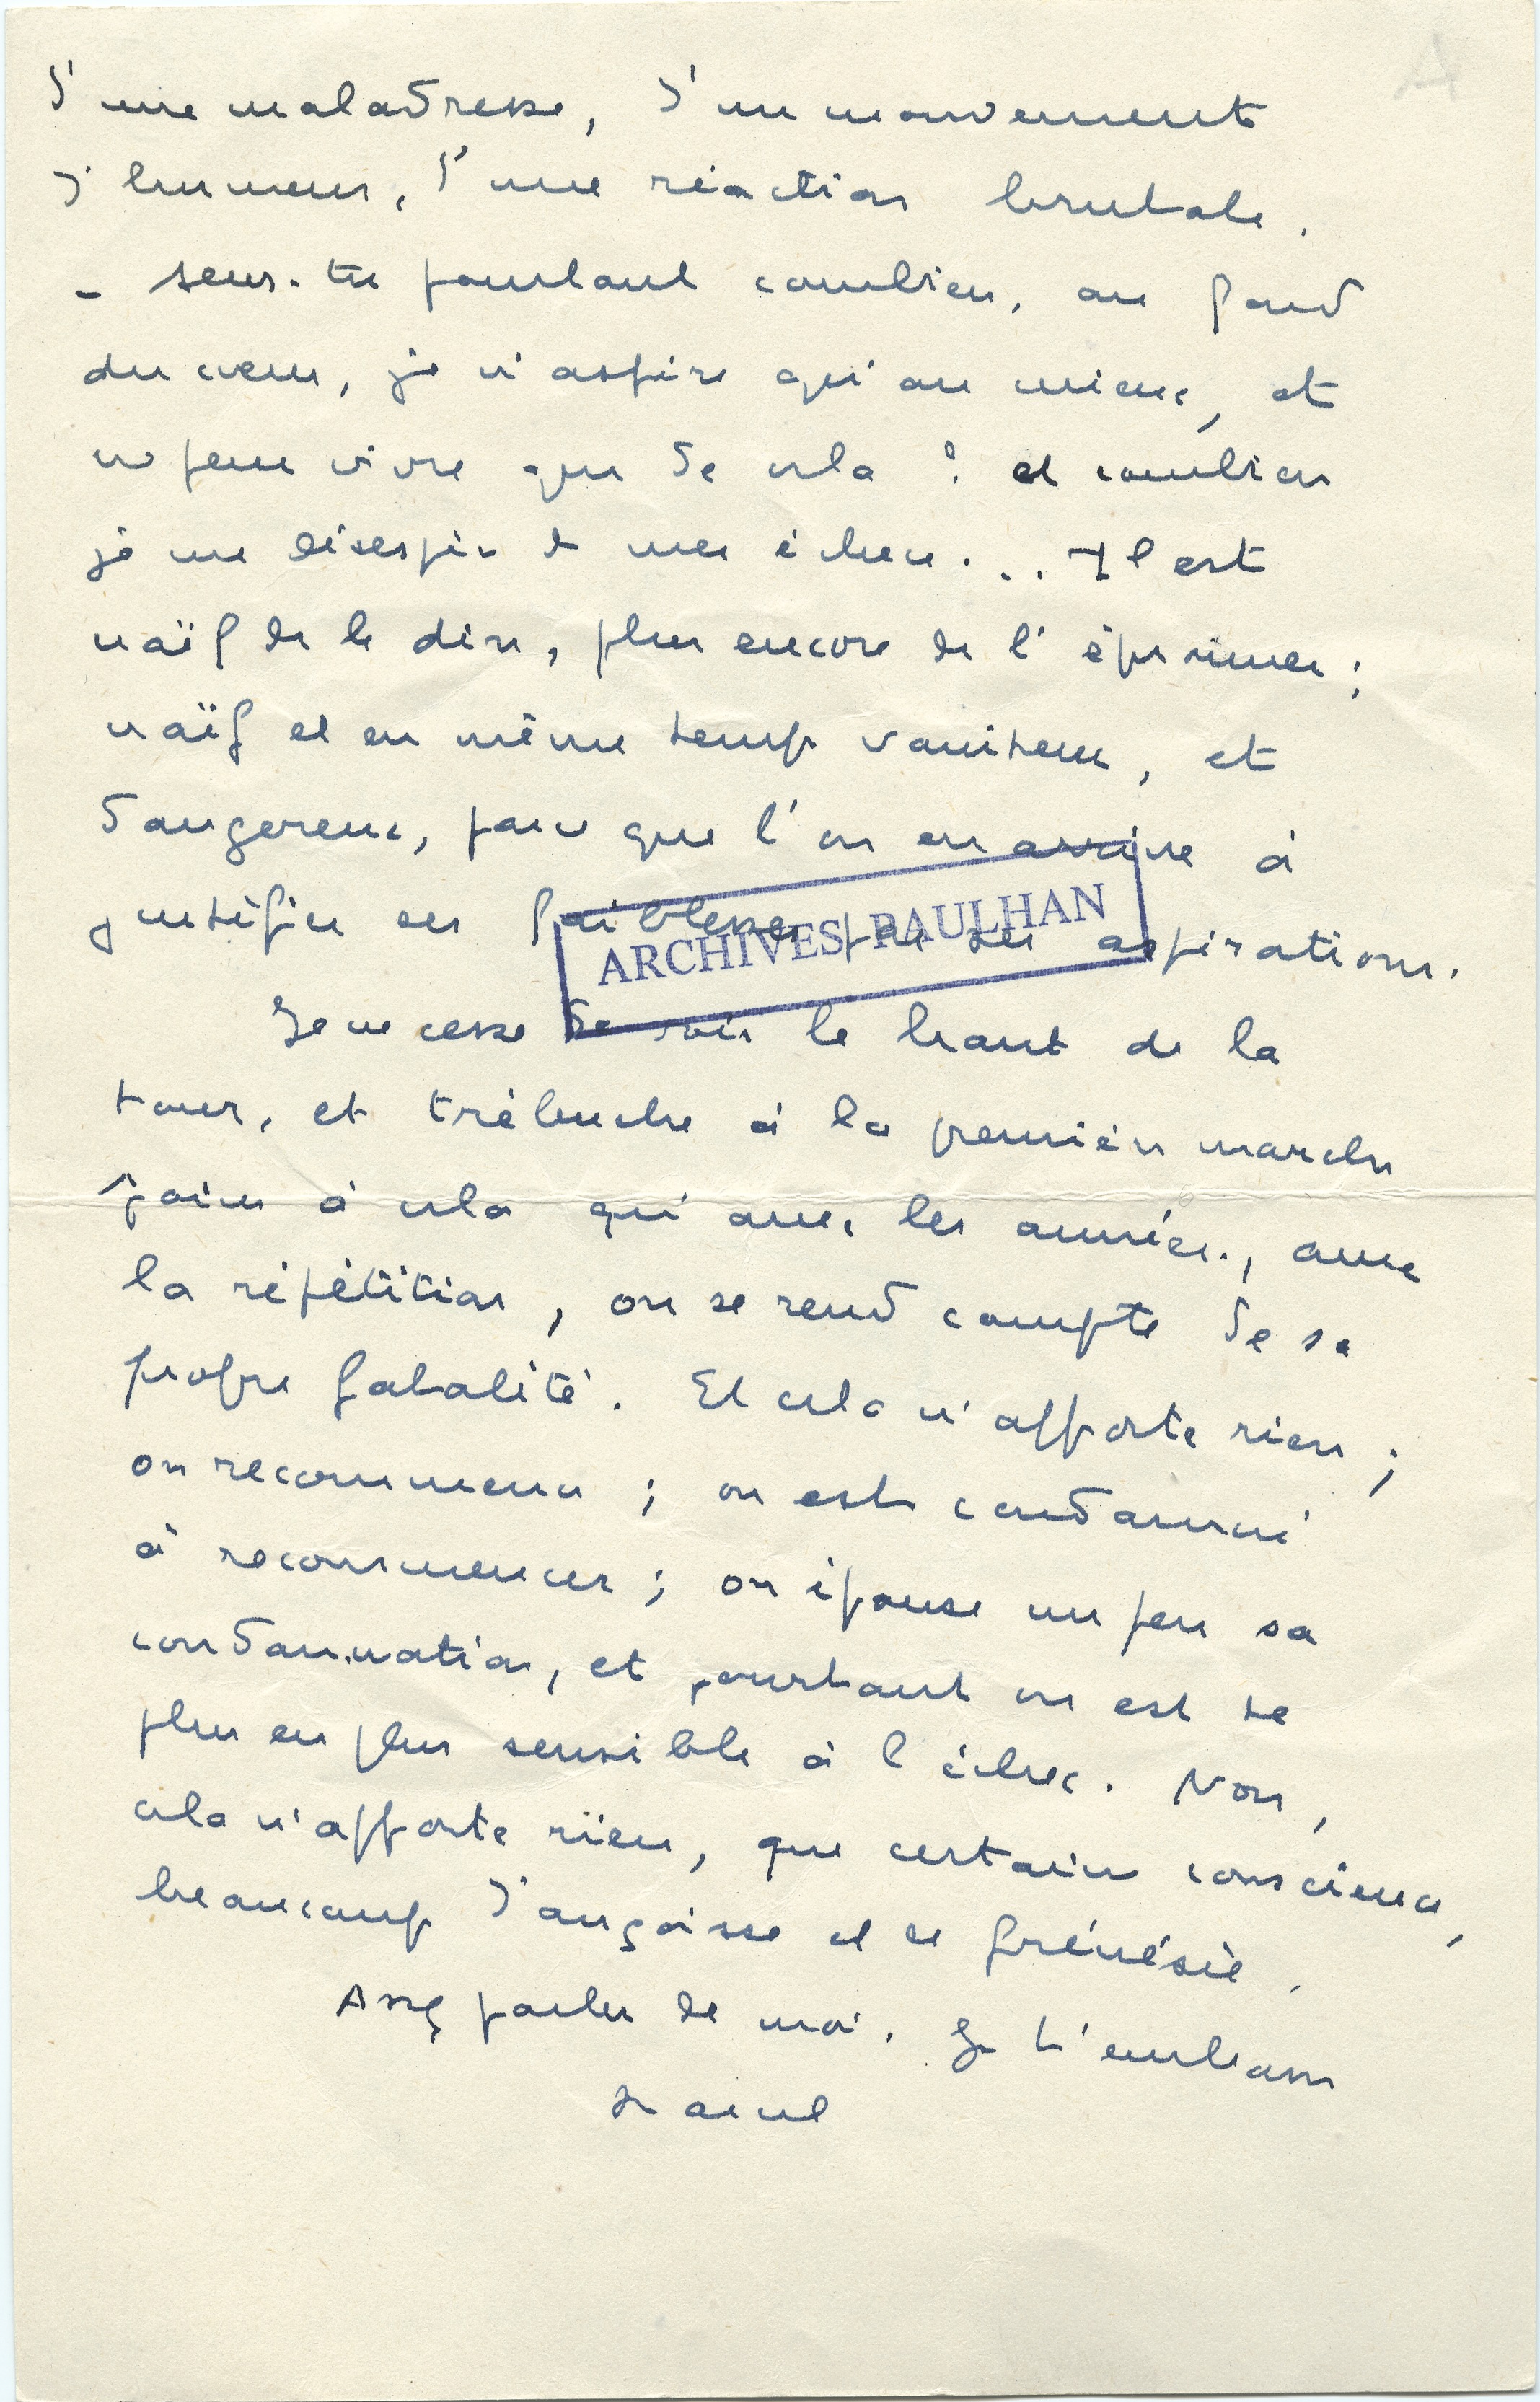 d'une maladresse, d'un mouvement
d'humeur, d'une réaction brutale.
- sens-tu pourtant combien, au fond
du cœur, je n'aspire qu'au mieux, et
ne peux vivre que de cela ? et combien
je me désespère de mes échecs... Il est
naïf de le dire, plus encore de l'éprouver ;
naïf et en même temps vaniteux, et
dangereux, parce que l'on en arrive à
justifier ses faiblesses par ses aspirations.
ARCHIVES PAULHAN
Je ne cesse de voir le haut de la
tour, et trébuche à la première marche
à cela qu'avec les années, avec
la répétition, on se rend compte de sa
propre fatalité. Et cela n'apporte rien ;
on recommence ; on est condamné
à recommencer ; on épouse un peu sa
condamnation, et pourtant on est de
plus en plus sensible à l'échec. Non,
cela n'apporte rien, que certaine conscience,
beaucoup d'angoisse et de frénésie.
Assez parler de moi. Je t'embrasse